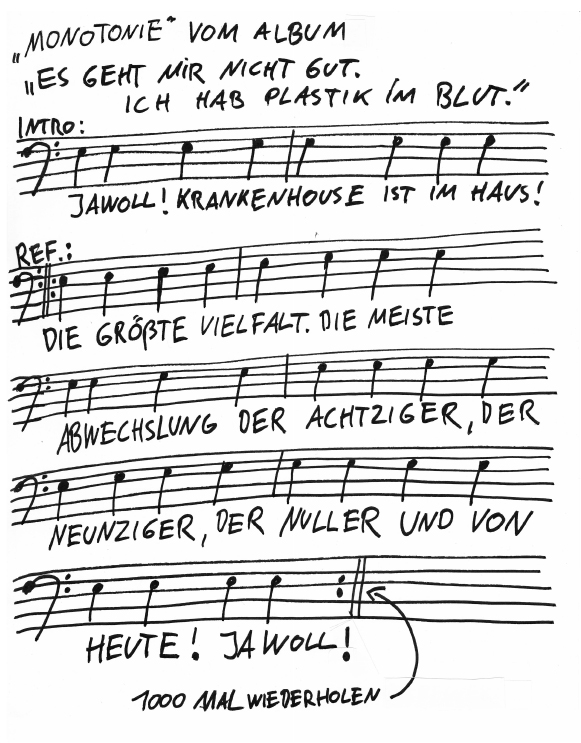 „MONOTONIE“ VOM ALBUM
„ES GEHT MIR NICHT GUT.
ICH HAB PLASTIK IM BLUT.“
INTRO:
JAWOLL! KRANKENHOUSE IST IM HAUS!
REF.:
DIE GRÖßTE VIELFALT. DIE MEISTE
ABWECHSLUNG DER ACHTZIGER, DER
NEUNZIGER, DER NULLER UND VON
HEUTE! JAWOLL!
1000 MAL WIEDERHOLEN